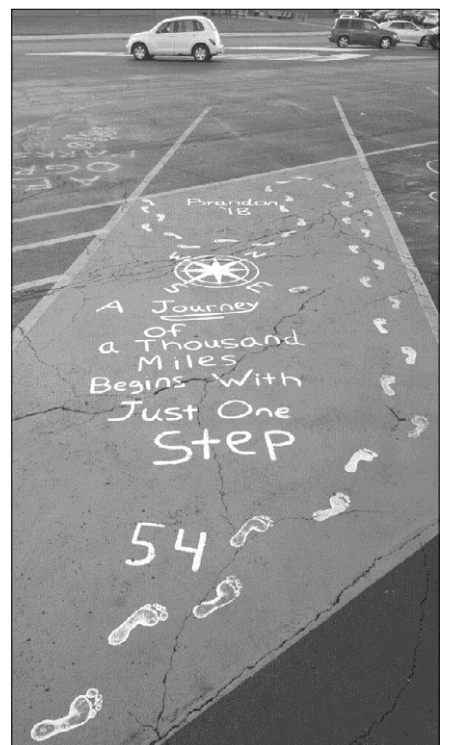 Brandon
'18
W N
S E
A Journey
of
a Thousand
Miles
Begins With
Just One
Step
54